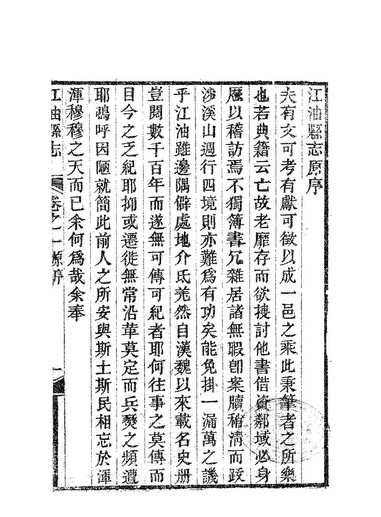 江油縣志原序
夫有文可考有獻可徵以成一邑之乘此秉筆者之所樂
也若典籍云亡故老靡存而欲搜討他書借資鄰域必身
歷以稽訪焉不獨簿書冗雜居諸無暇卽案牘稍淸而政
涉溪山週行四境則亦難爲有功矣能免掛一漏萬之譏
乎江油雖邊隅僻處地介氐羌然自漢魏以來載名史册
豈閱數千百年而遂無可傳可紀者耶何往事之莫傳而
目今之乏紀耶抑或遷徙無常沿革莫定而兵燹之頻遭
耶嗚呼因陋就簡此前人之所安與斯土斯民相忘於渾
渾穆穆之天而已余何爲哉余奉
江油縣志
卷之一原序
一